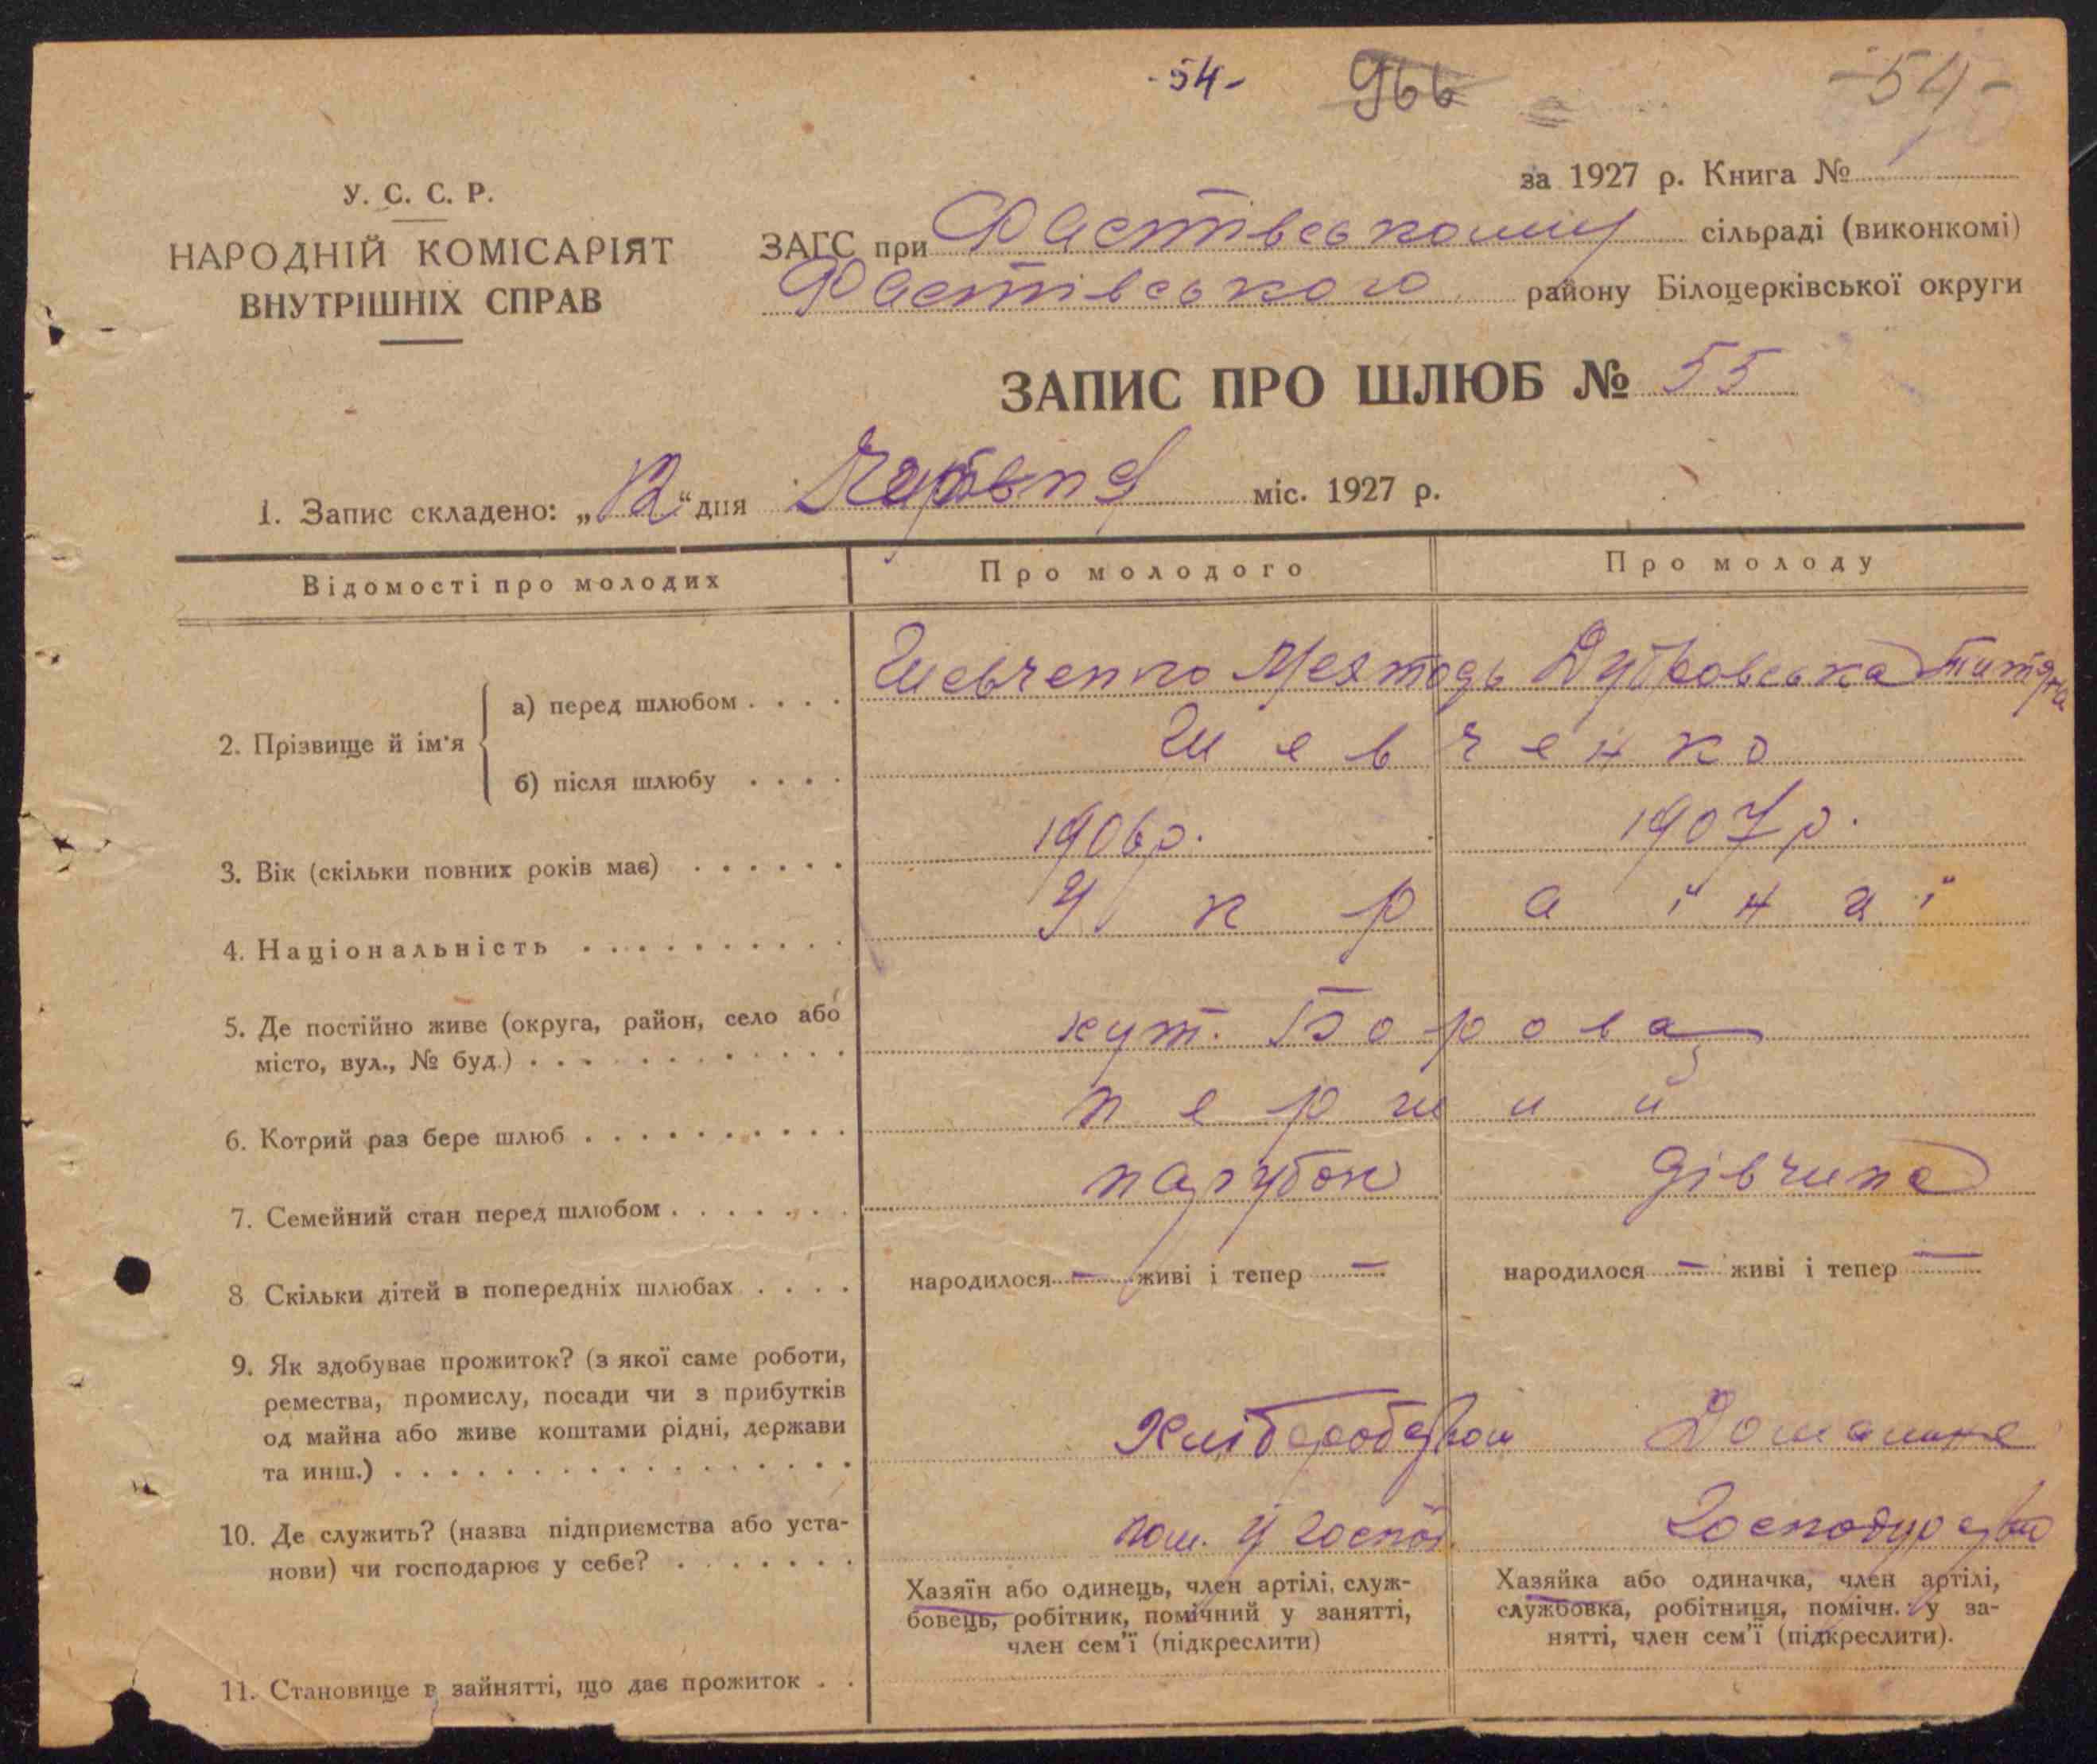 -54- 966 -54-
за 1927 р. Книга №
У. С. С. Р.
НАРОДНІЙ КОМІСАРІЯТ
ВНУТРІШНІХ СПРАВ
ЗАГС при Фастівському сільраді (виконкомі)
Фастівського району Білоцерківської округи
ЗАПИС ПРО ШЛЮБ № 55
1. Запис складено: „12“ дня Червня міс. 1927 р.
Відомості про молодих Про молодого Про молоду
2. Прізвище й ім'я
а) перед шлюбом . . . . Шевченко Мехтодь Дубковська Титяна
б) після шлюбу . . . . Шевченко
3. Вік (скільки повних років має) . . . . . . 1906р. 1907р.
4. Національність . . . . . . . . . . Україна ї
5. Де постійно живе (округа, район, село або
місто, вул., № буд.) . . . . . . . . . . . . хут. Борова
6. Котрий раз бере шлюб . . . . . . . . . . перший
7. Семейний стан перед шлюбом . . . . . . . парубок дівчина
8 Скільки дітей в попередніх шлюбах . . . . народилося — живі і тепер — народилося — живі і тепер —
9. Як здобуває прожиток? (з якої саме роботи,
ремества, промислу, посади чи з прибутків
од майна або живе коштами рідні, держави
та инш.) . . . . . . . . . . . . . . . . . Домашнє
10. Де служить? (назва підприємства або уста-
нови) чи господарює у себе? . . . . . . . пом. у господ.
Хазяїн або одинець, член артілі, служ-
бовець, робітник, помічний у занятті,
член сем'ї (підкреслити)
Хазяйка або одиначка, член артілі,
службовка, робітниця, помічн. у за-
нятті, член сем'ї (підкреслити).
11. Становище в зайнятті, що дає прожиток . .